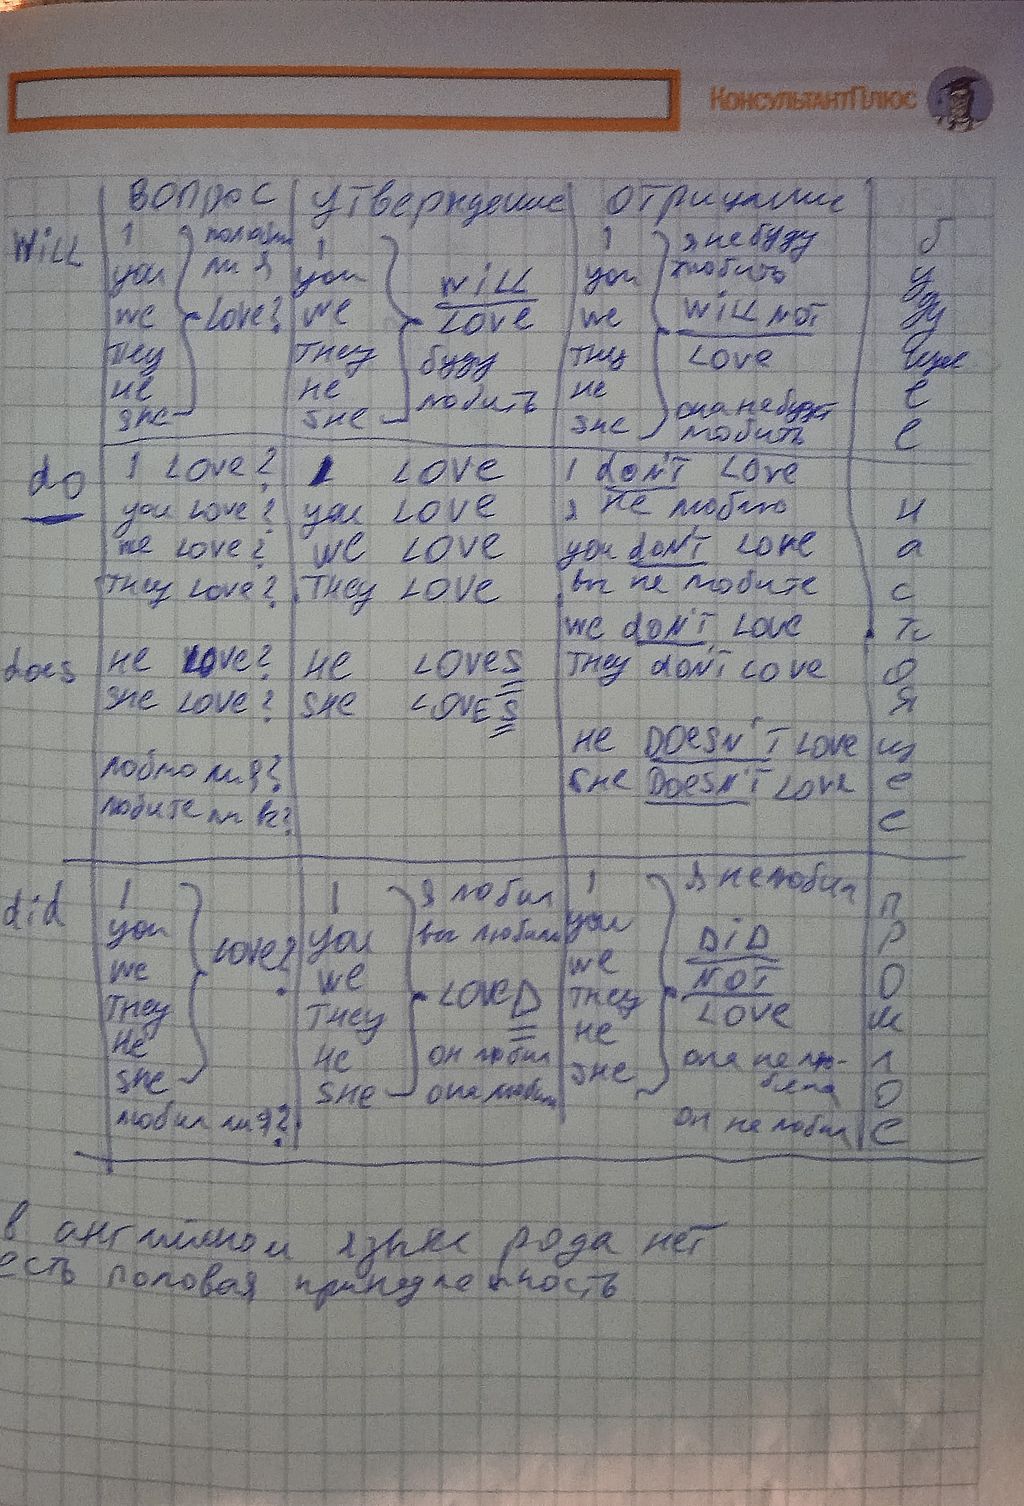 КонсультантПлюс
вопрос утверждение отрицание
Will
I I I я не буду
you ли я you WILL you любить
we LOVE? we LOVE we WILL NOT
They They буду They LOVE
не не любить не она не будет
sне sне sне любить
будуще е
do I LOVE? I LOVE I dON'T LOVE
you LOVE? you LOVE я не люблю
we LOVE? WE LOVE you dON'T LOVE
They LOVE? They LOVE вы не любите
we dON'T LOVE
does не LOVE? не LOVES They dON'T LOVE
sне LOVE? sне LOVES
не DOESN'T LOVE
люблю ли я? sне DOESN'T LOVE
любите ли вы?
настоящее
did I I я любил I я не любил
you you вы любили you DiD
we LOVE? we we NOT
They They LOVED They LOVE
не не он любил не она не лю-
sне sне она любила sне била
любил ли я? он не любил
прошлое
в английском языке рода нет
есть половая принадлежность